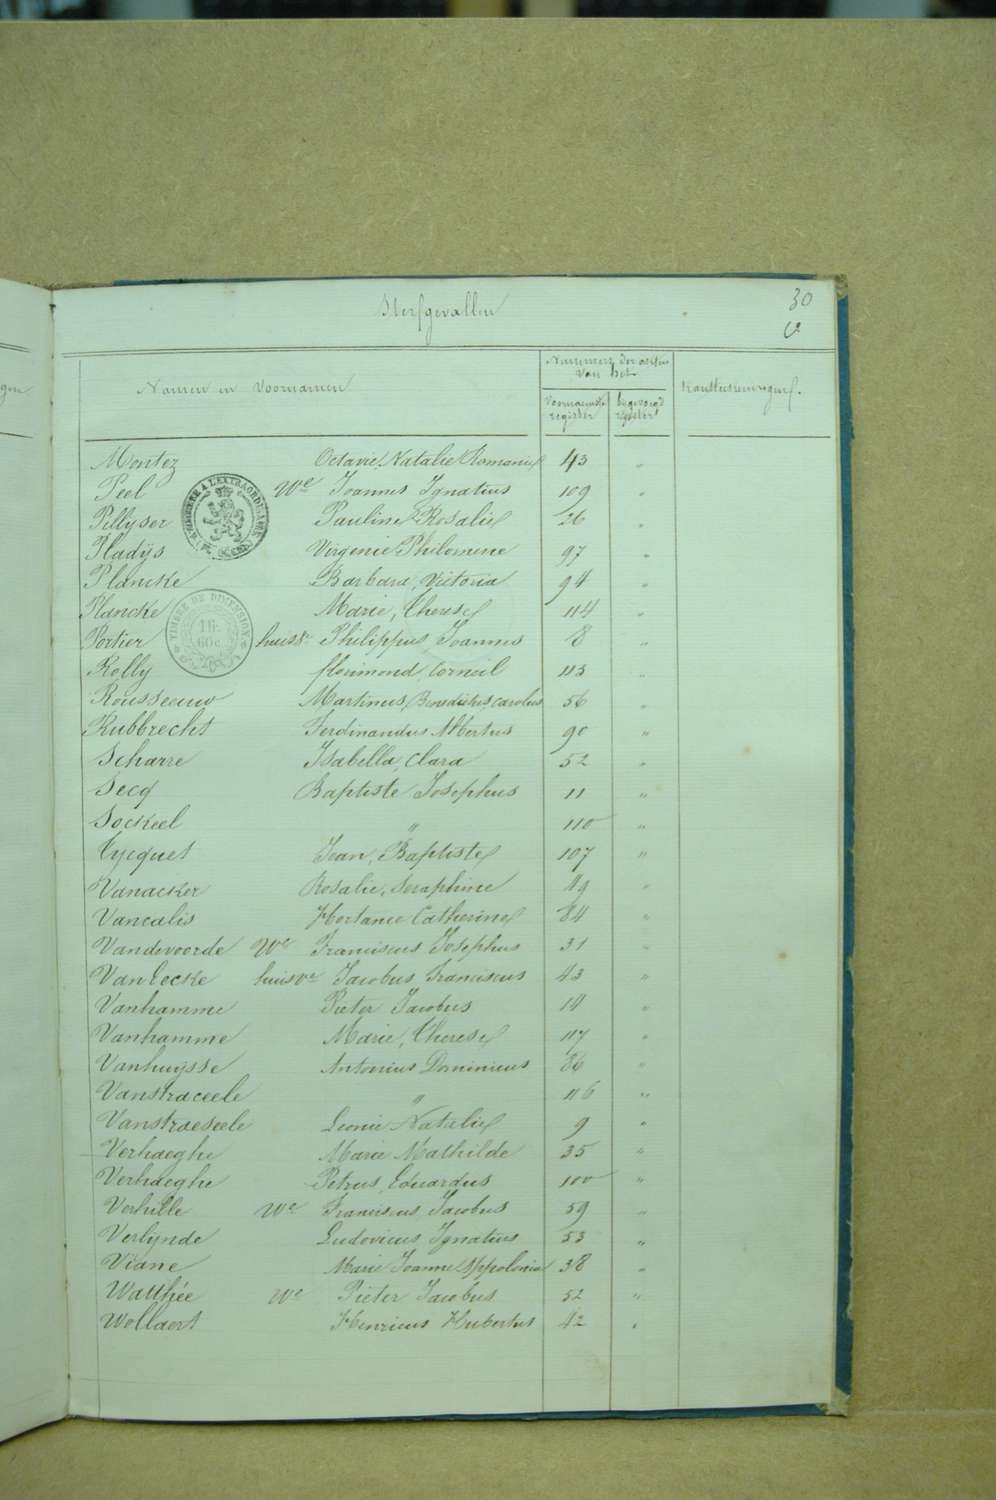 Sterfgevallen
30
Namen en Voornamen
Nummers der acten van het
Voornaemste register
bygevoegd register
Kantteekeningen
Montez Octavie Natalie Romanie 43 "
Peel We Joannes Ignatius 109 "
Pillyser Pauline Rosalie 26 "
Pladijs Virginie Philomene 97 "
Plancke Barbara, Victoria 94 "
Plancke Marie, Therese 114 "
Portier huisve Philippus Joannes 8 "
Rolly florimond, Corneil 113 "
Rousseeuw Martinus, Benedictus Carolus 56 "
Rubbrecht Ferdinandus Albertus 90 "
Scharre Isabella, Clara 52 "
Secq Baptiste Josephus 11 "
Sockeel " 110 "
Tycquet Jean, Baptiste 107 "
Vanacker Rosalie, Seraphine 49 "
Vancalis Hortance Catherine 84 "
Vandevoorde We Franciscus Josephus 31 "
VanEecke huisve Jacobus Franciscus 43 "
Vanhamme Pieter Jacobus 14 "
Vanhamme Marie, Therese 117 "
Vanhuysse Antonius Dominicus 86 "
Vanstraceele " 116 "
Vanstraeseele Leonie Natalie 9 "
Verhaeghe Marie Mathilde 35 "
Verhaeghe Petrus, Eduardus 100 "
Verhille We Franciscus Jacobus 59 "
Verlynde Ludovicus Ignatius 53 "
Viane Marie Joanne Appolonia 38 "
Watthée We Pieter Jacobus 52 "
Wollaert Henricus Hubertus 42 "
TIMBRE DE DIMENSION
60c